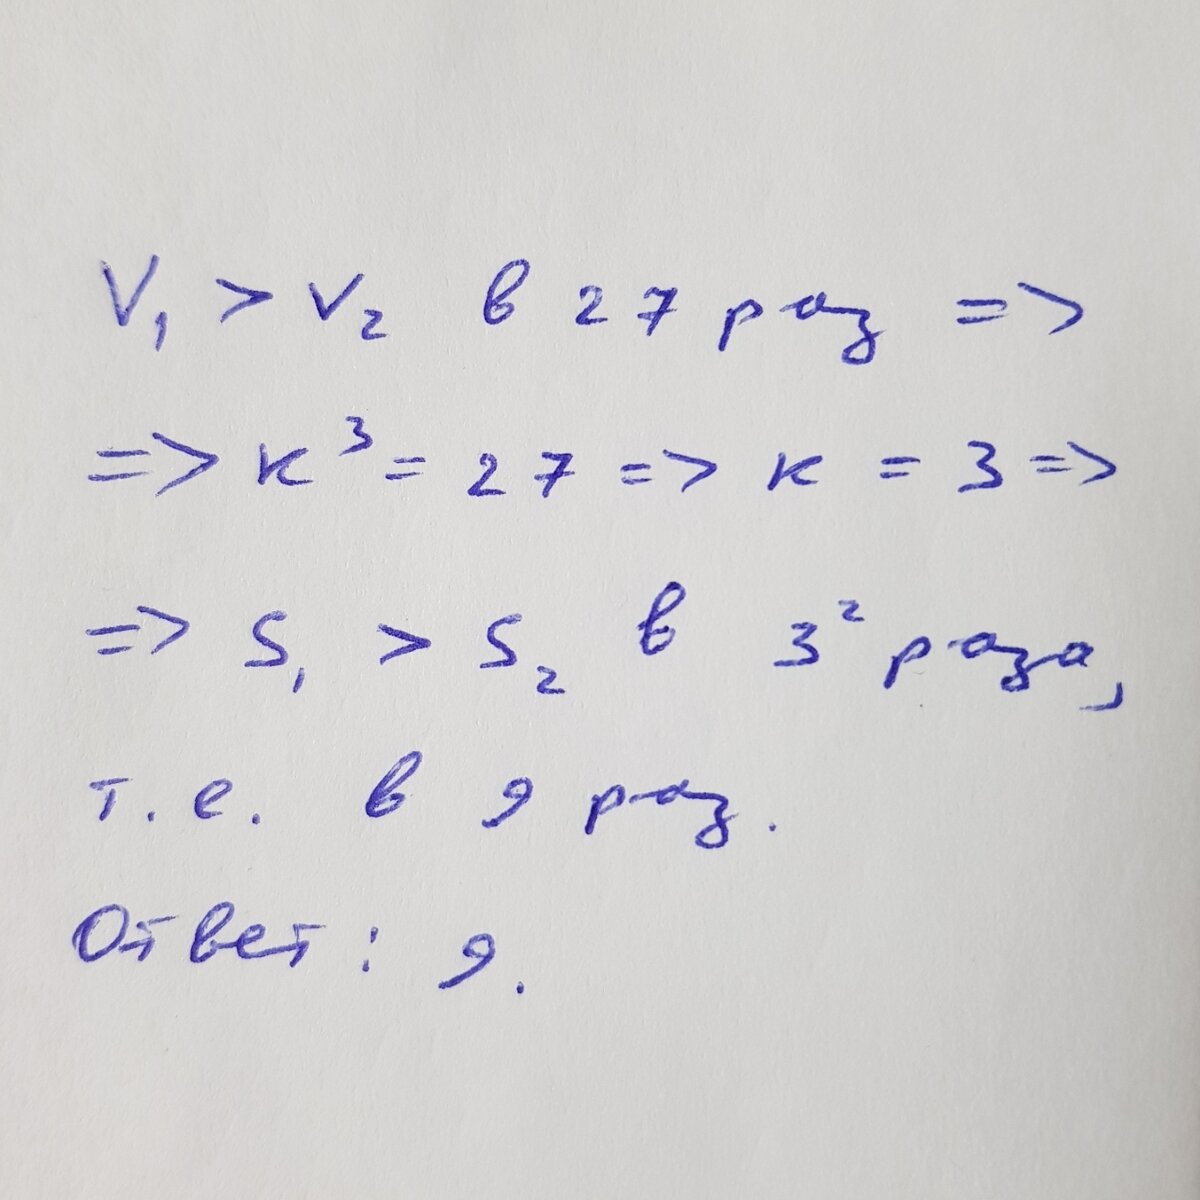 V₁ > V₂ в 27 раз =>
=> к³ = 27 => к = 3 =>
=> S₁ > S₂ в 3² раза,
т.е. в 9 раз.
Ответ: 9.